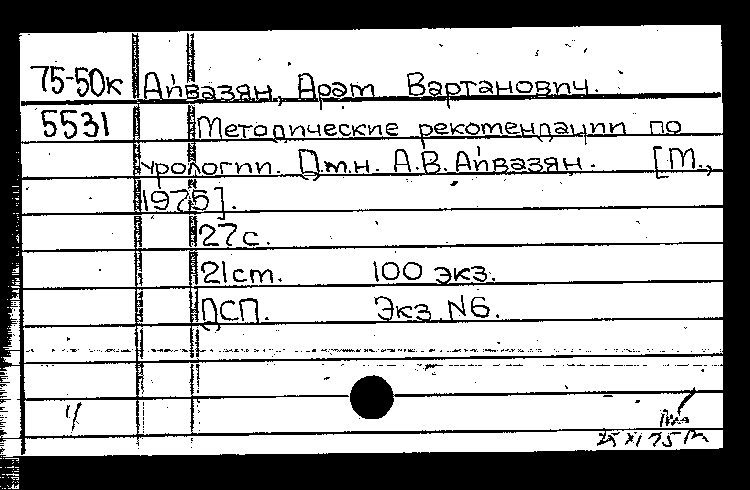 75-50к Айвазян, Арэт Вартанович.
5531 Методические рекомендации по
урологии. Д.м.н. А.В. Айвазян. [М.,
1975].
27с.
21ст. 100 экз.
ДСП. Экз. №6.
25 XI 75